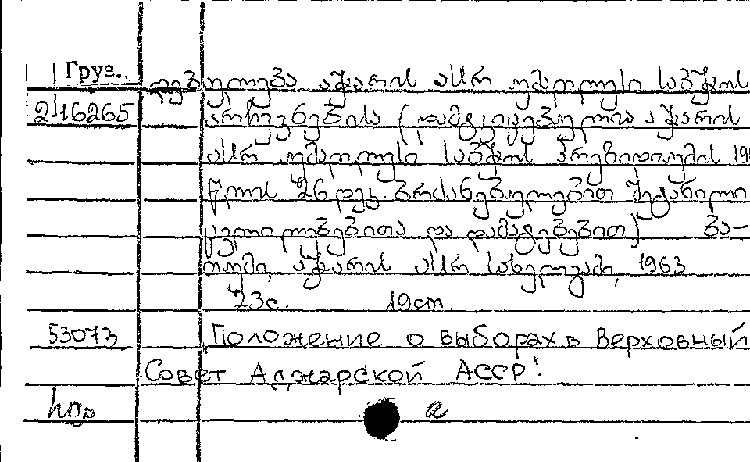 Груз. დებულება აჭარის ასსრ უმაღლესი საბჭოს
216265 არჩევნების (დამტკიცებულია აჭარის
ასსრ უმაღლესი საბჭოს პრეზიდიუმის 19
წლის 26 დეკ. ბრძანებულებით შეტანილი
ცვლილებებითა და დამატებებით) ბა-
თუმი, აჭარის ასსრ სახელგამი, 1963
23с. 19cm.
53073 Положение о выборах в Верховный
Совет Аджарской АССР!